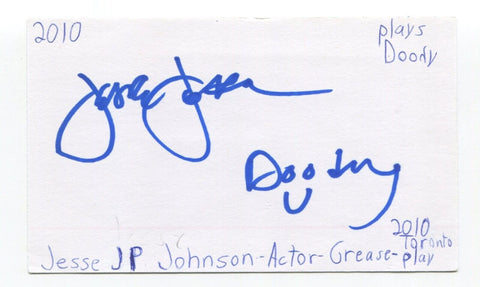 2010
plays
Doody
Doody
2010
Toronto
Jesse JP Johnson-Actor-Grease-play